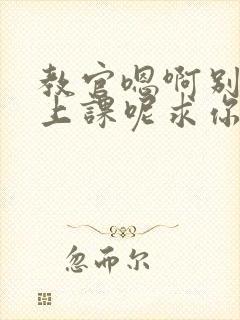 教官嗯啊别
上課呢求你
忽而尔